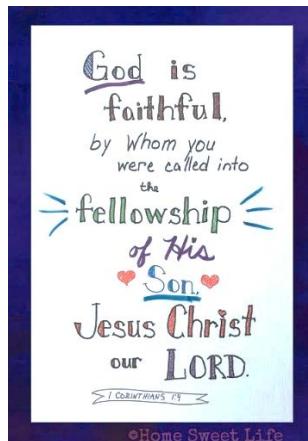 God is
faithful,
by Whom you
were called into
the
fellowship
of His
Son,
Jesus Christ
our LORD.
1 CORINTHIANS 1:9
©Home Sweet Life